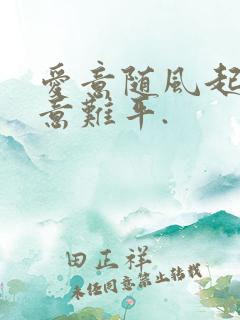 愛意随風起
意難平.
田正祥
未经同意禁止转载